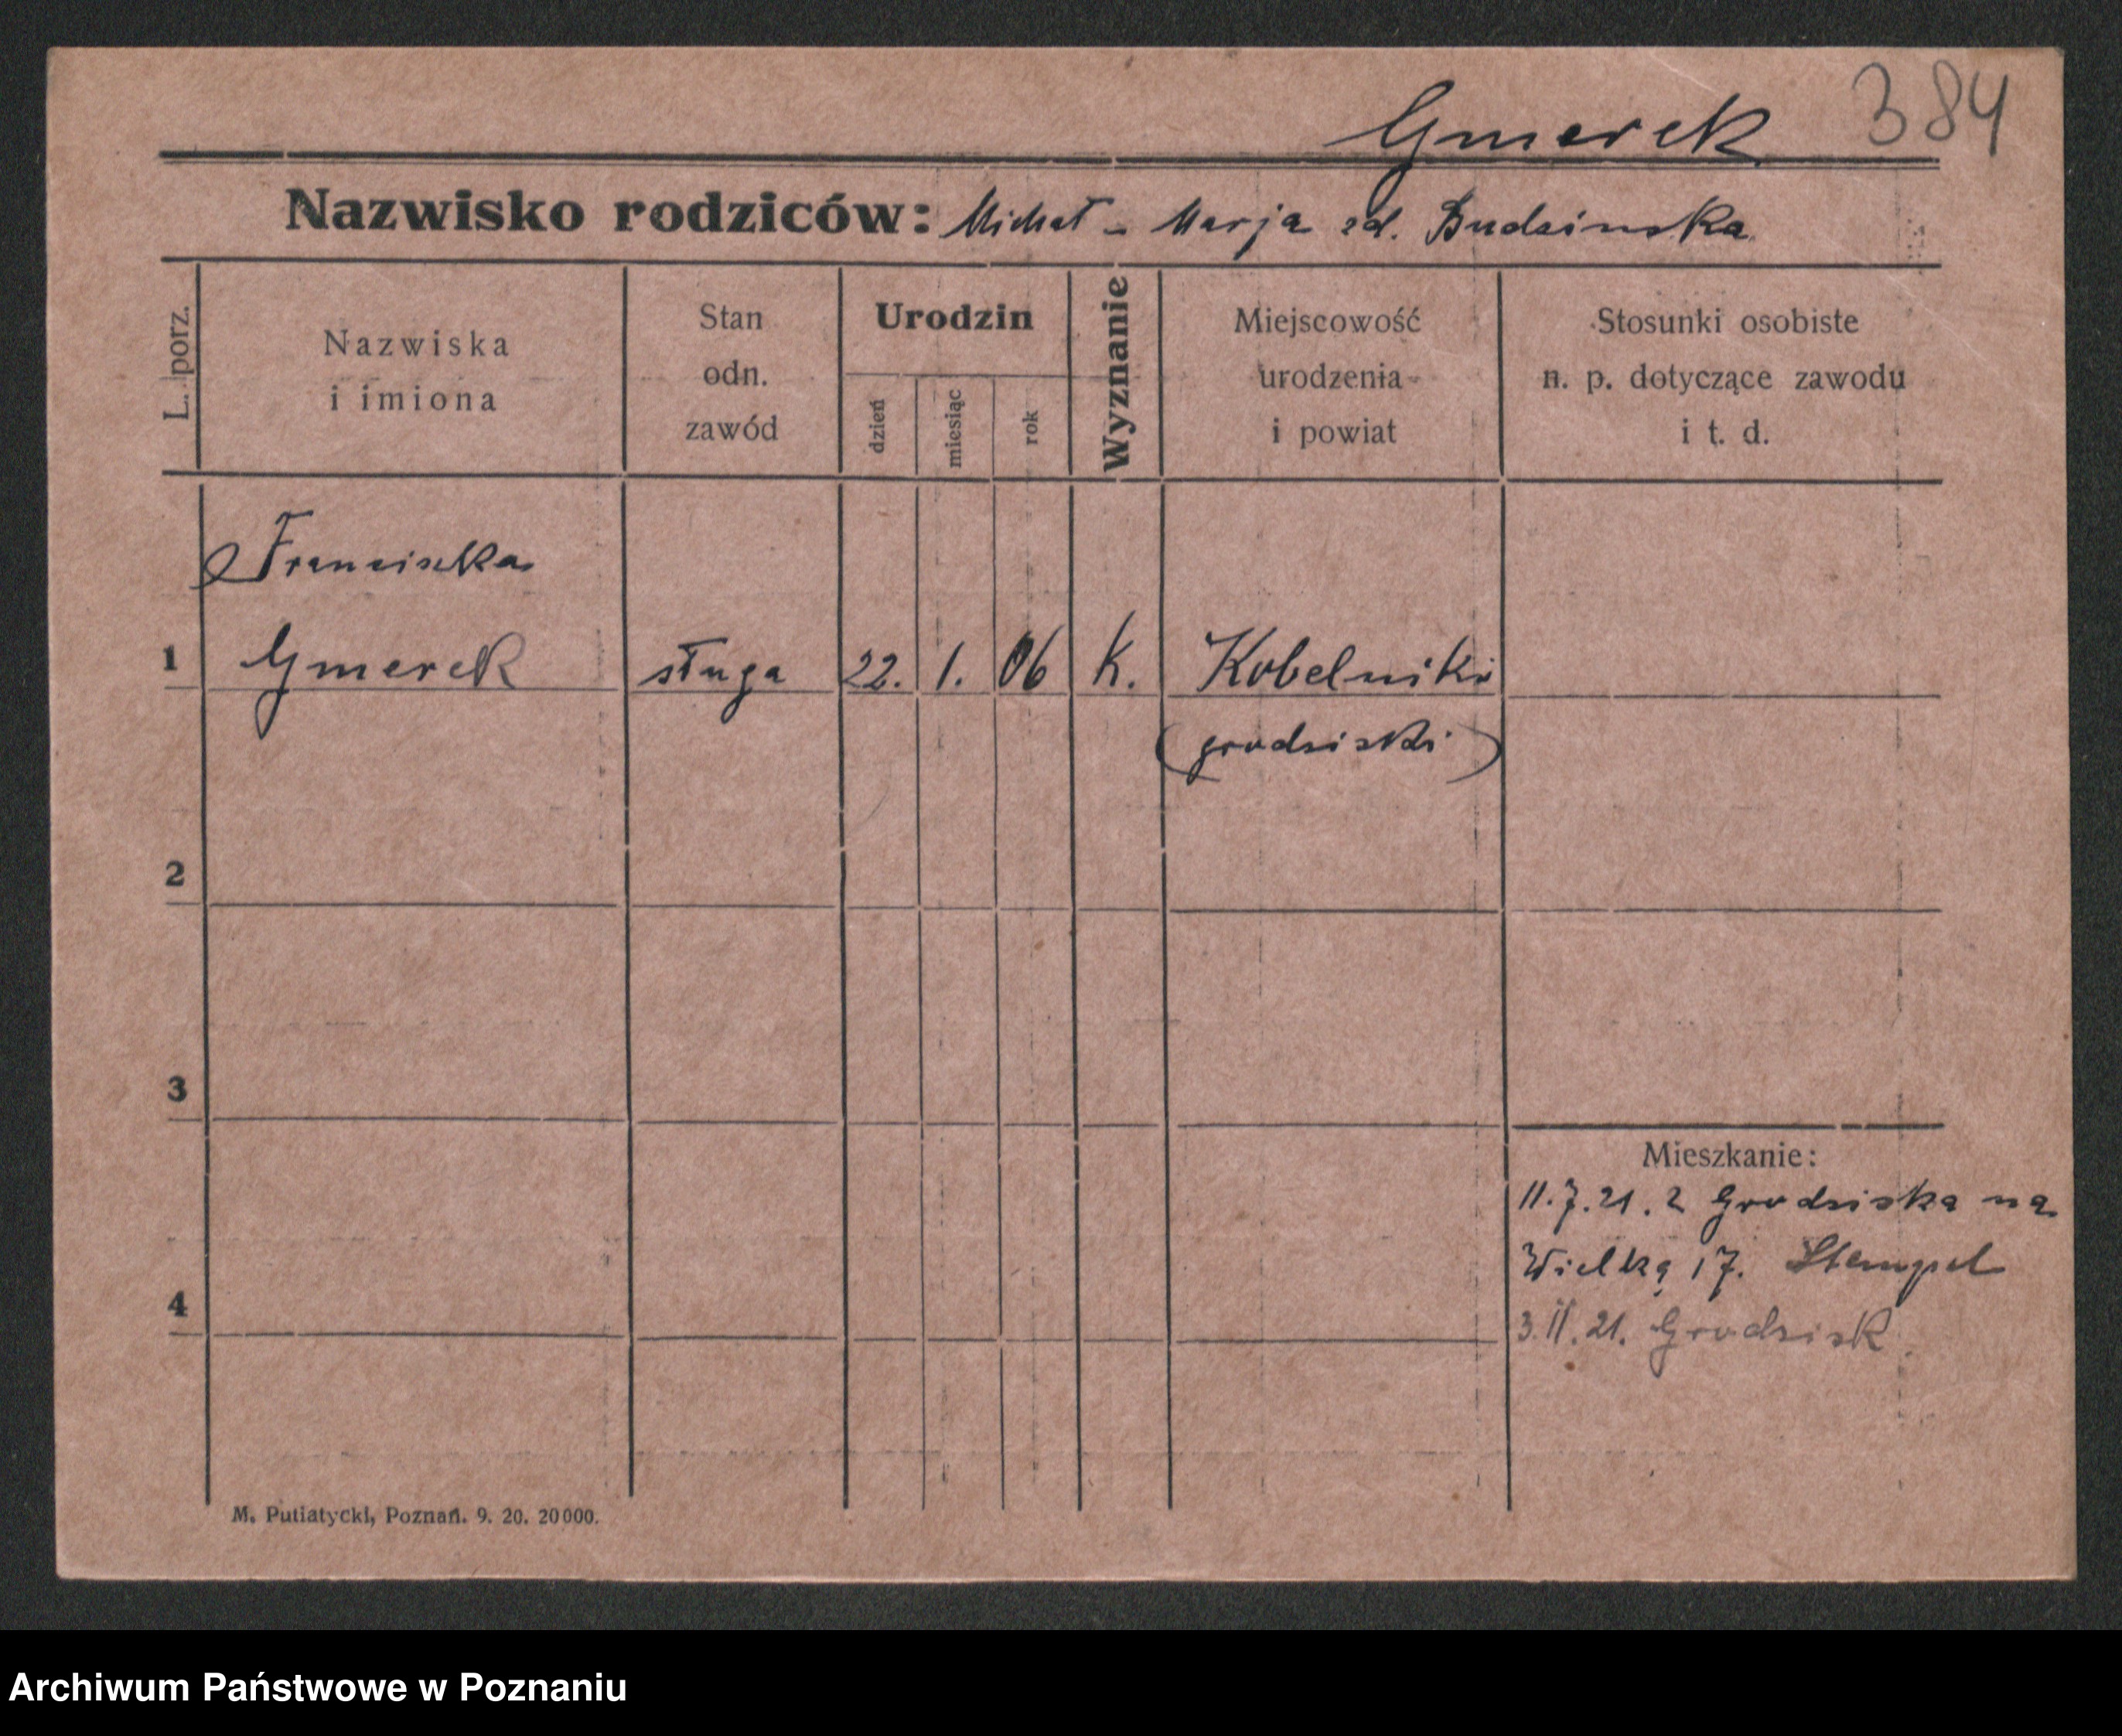 Gmerek 384
Nazwisko rodziców: Michał - Marja zd. Budzinska
L. porz.
Nazwiska
i imiona
Stan
odn.
zawód
Urodzin
dzień
miesiąc
rok
Wyznanie
Miejscowość
urodzenia
i powiat
Stosunki osobiste
n. p. dotyczące zawodu
i t. d.
Franciszka
1 Gmerek sługa 22. 1. 06 k. Kobelniki
(grodziski)
2
3
Mieszkanie:
11.7.21. z Grodziska na
Wielką 17. Stempel
4
3.II.21. Grodzisk
M. Putiatycki, Poznań. 9. 20. 20000.
Archiwum Państwowe w Poznaniu